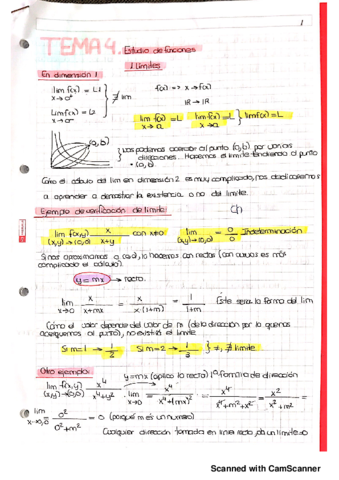 1
TEMA 4. Estudio de funciones
1 Límites
En dimensión 1
lim f(x) = L1
x→a⁺
lim f(x) = L2
x→a⁻
∄ lim
f(x) => x → f(x)
ℝ → ℝ
lim f(x) = L
x→a
lim f(x) = L
x→a
lim f(x) = L
(a,b)
Nos podemos acercar al punto (a,b) por varias
direcciones. Hacemos el límite tendiendo al punto
(a,b)
Cómo el cálculo del lim en dimensión 2 es muy complicado, nos dedicaremos
a aprender a demostrar la existencia o no del límite.
Ejemplo de verificación de límite:
lim f(x,y) x/(x+y) con x≠0
(x,y)→(0,0)
lim = 0/0 Indeterminación
(x,y)→(0,0)
Si nos aproximamos a (0,0), lo hacemos con rectas (con curvas es más
complicado el cálculo).
y = mx → recta.
lim x/(x+mx) = x/(x(1+m)) = 1/(1+m)
x→0
Este será la forma del lim
Cómo el valor depende del valor de m (de la dirección por la que nos
acerquemos al punto), no existirá el límite
Si m=1 → 1/2 Si m=2 → 1/3 } ≠, ∄ límite
Otro ejemplo:
y=mx (aplico la recta) 1º Familia de dirección
lim f(x,y) x⁴/(x⁴+y²)
(x,y)→(0,0)
lim x⁴/(x⁴+(mx)²) = x⁴/(x⁴+m²+x²) = x²/(x²+m²) =
x→0
lim 0²/(0²+m²) = 0 (porque m es un numero)
x→0
Cualquier dirección tomada en linea recta da un límite=0
Scanned with CamScanner